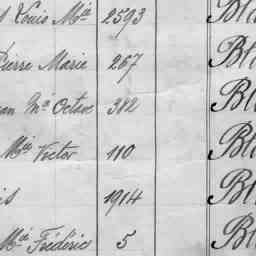 Louis Mie 2593 Bl
Pierre Marie 267 Bl
Me Octave 382 Bl
Mie Victor 110 Bl
is 1914 Bl
Mie Frédéric 5 Bl